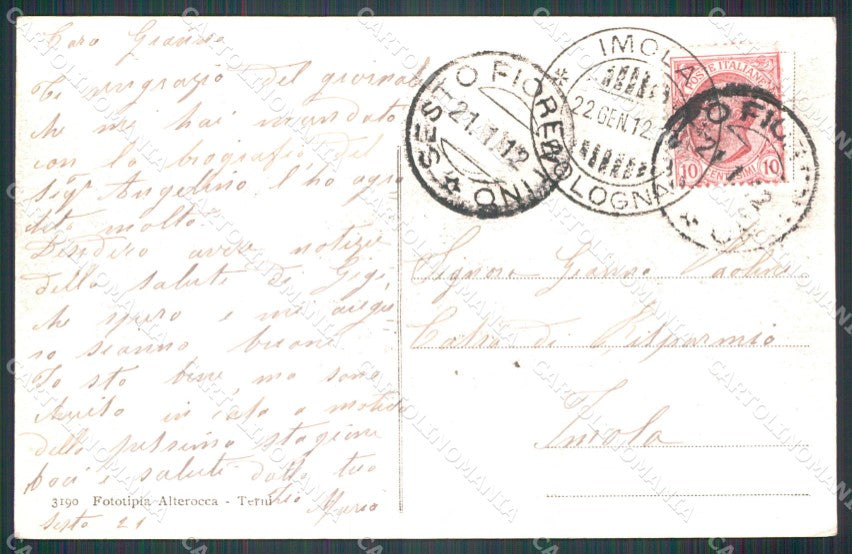 Cara Gianna
Ti ringrazio del giornale
che mi hai mandato
con la biografia del
Sigr Angelino. L'ho agra
dito molto.
Desidero avere notizie
della salute di Gigi,
che spero e mi augu
ro sianno buone
Io sto bene, ma sono
in casa a motivo
della pessima stagione
Baci e saluti dalla tua
Zia Maria
Sesto 21
3190 Fototipia Alterocca - Terni
SESTO FIORENTINO
21.1.12
IMOLA
22.GEN.12
BOLOGNA
POSTE ITALIANE
10 CENTESIMI 10
Signora Gianna Paolini
Cassa di Risparmio
Imola
CARTOLINOMANIA